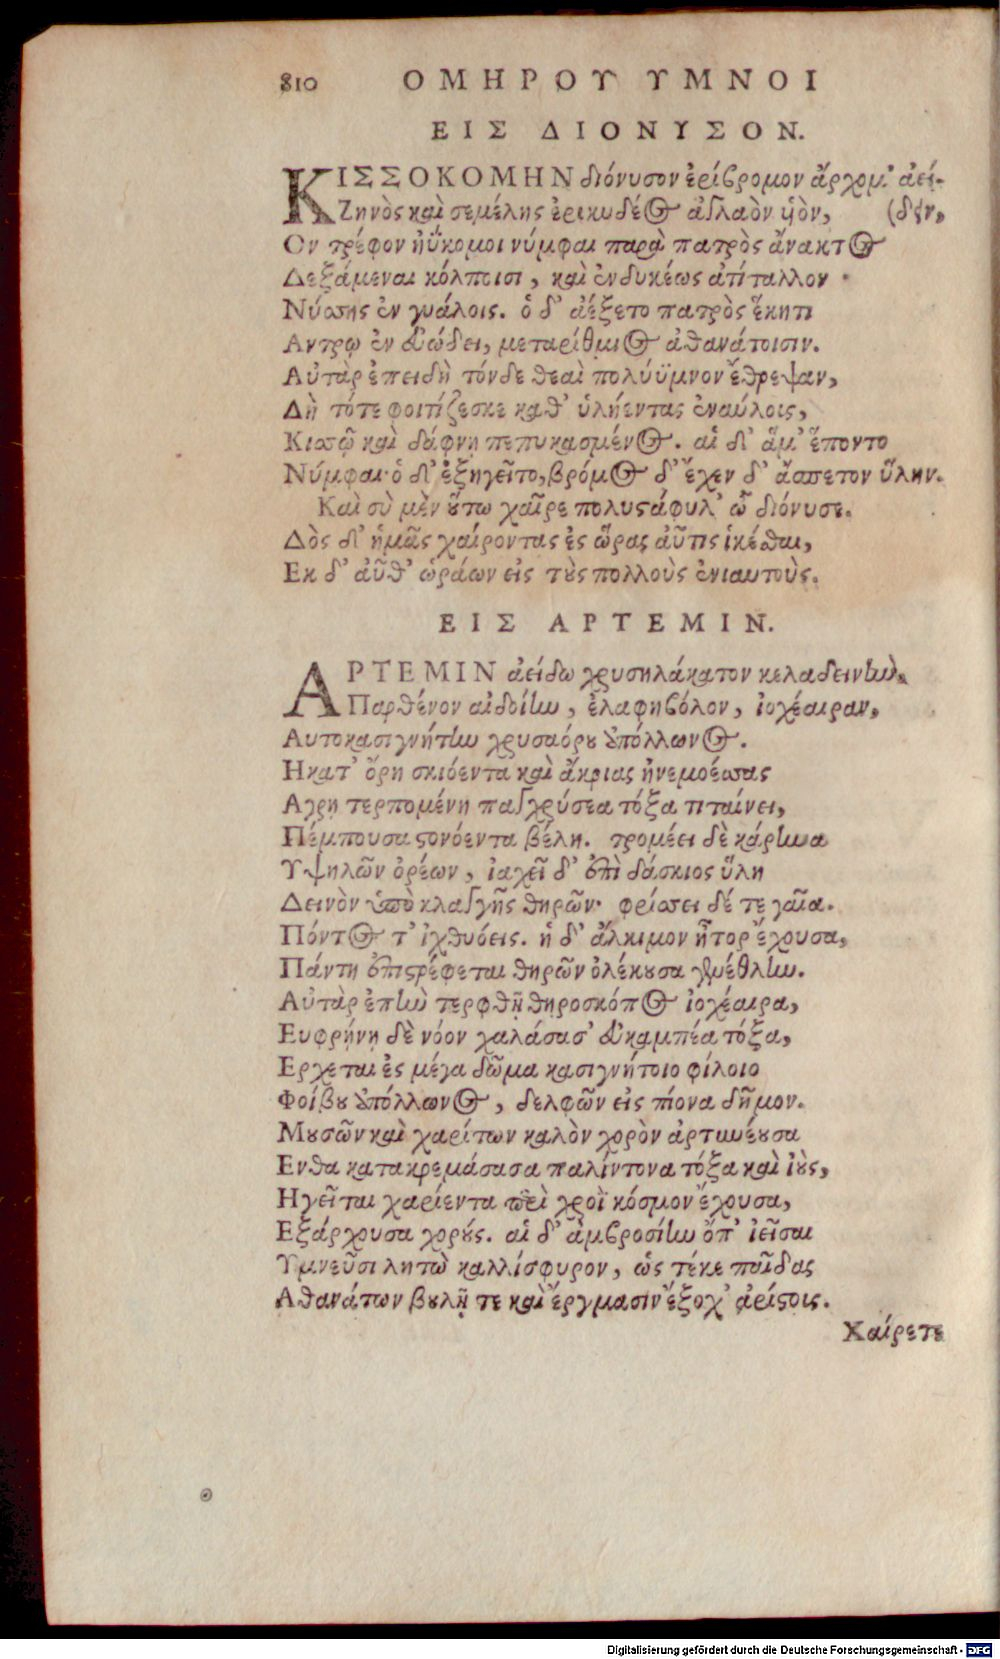 810 ΟΜΗΡΟΥ ΥΜΝΟΙ
ΕΙΣ ΔΙΟΝΥΣΟΝ.
ΚΙΣΣΟΚΟΜΗΝ διόνυσον ἐρίβρομον ἄρχομ' ἀεί-
Ζηνὸς καὶ σεμέλης ἐρικυδέος ἀγλαὸν ὑὸν, (δειν,
Ον τρέφον ἠΰκομοι νύμφαι παρὰ πατρὸς ἄνακτος
Δεξάμεναι κόλποισι, καὶ ἐνδυκέως ἀτίταλλον
Νύσσης ἐν γυάλοις. ὁ δ' ἀέξετο πατρὸς ἕκητι
Αντρῳ ἐν εὐώδει, μεταρίθμιος ἀθανάτοισιν.
Αὐτὰρ ἐπειδὴ τόνδε θεαὶ πολύϋμνον ἔθρεψαν,
Δὴ τότε φοιτίζεσκε καθ' ὑλήεντας ἐναύλοις,
Κισσῷ καὶ δάφνῃ πεπυκασμένος. αἱ δ' ἅμ' ἕποντο
Νύμφαι· ὁ δ' ἐξηγεῖτο, βρόμος δ' ἔχεν δ' ἄσπετον ὕλην.
Καὶ σὺ μὲν οὕτω χαῖρε πολυστάφυλ' ὦ διόνυσε.
Δὸς δ' ἡμᾶς χαίροντας ἐς ὥρας αὖτις ἱκέσθαι,
Εκ δ' αὖθ' ὡράων εἰς τοὺς πολλοὺς ἐνιαυτούς.
ΕΙΣ ΑΡΤΕΜΙΝ.
ΑΡΤΕΜΙΝ ἀείδω χρυσηλάκατον κελαδεινὴν,
Παρθένον αἰδοίην, ἐλαφηβόλον, ἰοχέαιραν,
Αυτοκασιγνήτην χρυσαόρου ἀπόλλωνος.
Η κατ' ὄρη σκιόεντα καὶ ἄκριας ἠνεμοέσσας
Αγρῃ τερπομένη παγχρύσεα τόξα τιταίνει,
Πέμπουσα στονόεντα βέλη. τρομέει δὲ κάρηνα
Υψηλῶν ὀρέων, ἰαχεῖ δ' ἐπὶ δάσκιος ὕλη
Δεινὸν ὑπὸ κλαγγῆς θηρῶν· φρίσσει δέ τε γαῖα.
Πόντος τ' ἰχθυόεις. ἡ δ' ἄλκιμον ἦτορ ἔχουσα,
Πάντη ἐπιστρέφεται θηρῶν ὀλέκουσα γενέθλην.
Αὐτὰρ ἐπὴν τερφθῇ θηροσκόπος ἰοχέαιρα,
Ευφρήνῃ δὲ νόον χαλάσασ' εὐκαμπέα τόξα,
Ερχεται ἐς μέγα δῶμα κασιγνήτοιο φίλοιο
Φοίβου ἀπόλλωνος, δελφῶν εἰς πίονα δῆμον.
Μουσῶν καὶ χαρίτων καλὸν χορὸν ἀρτυνέουσα
Ενθα κατακρεμάσασα παλίντονα τόξα καὶ ἰοὺς,
Ηγεῖται χαρίεντα περὶ χροῒ κόσμον ἔχουσα,
Εξάρχουσα χορούς. αἱ δ' ἀμβροσίην ὄπ' ἰεῖσαι
Υμνεῦσι λητὼ καλλίσφυρον, ὡς τέκε παῖδας
Αθανάτων βουλῇ τε καὶ ἔργμασιν ἔξοχ' ἀρίστοις.
Χαίρετε
Digitalisierung gefördert durch die Deutsche Forschungsgemeinschaft - DFG